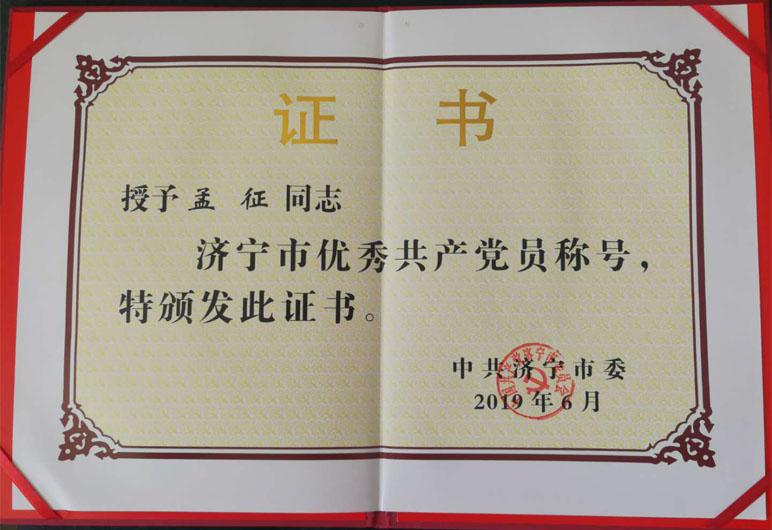 证书
授予孟 征同志
济宁市优秀共产党员称号，
特颁发此证书。
中共济宁市委
2019年6月